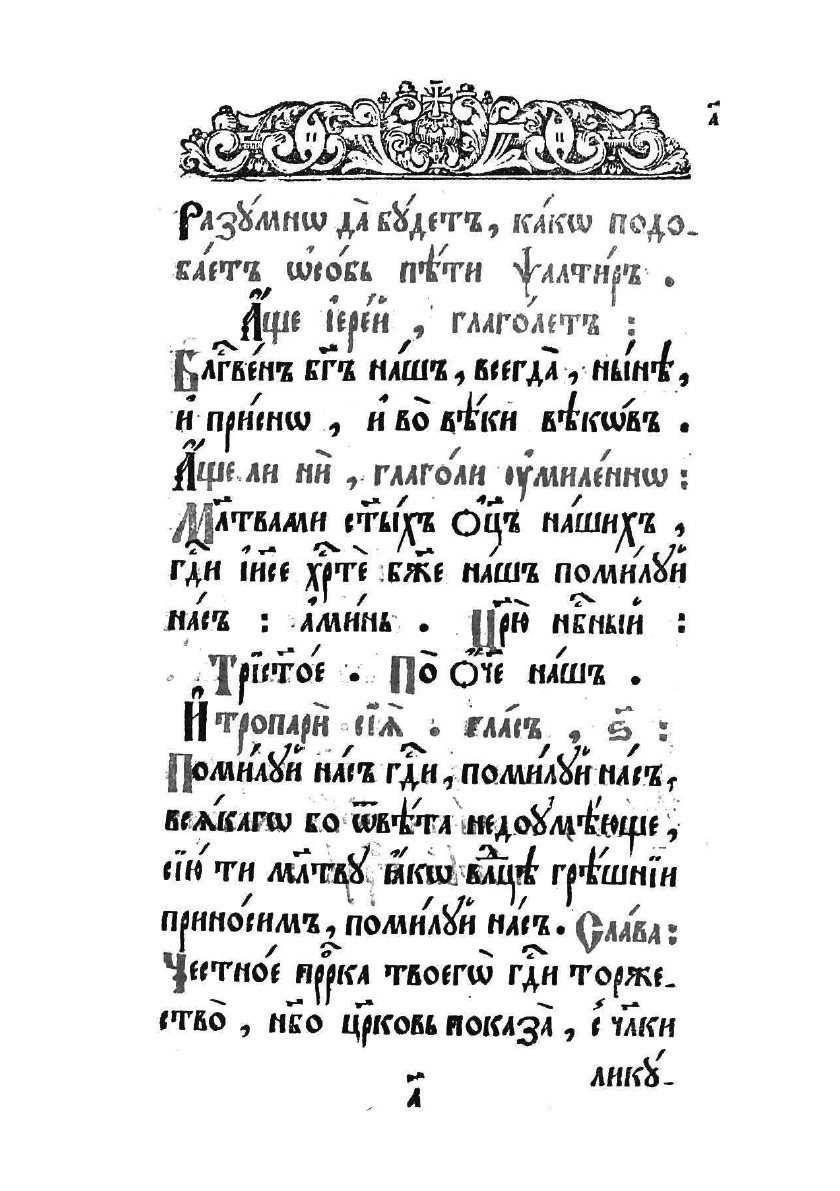 а҃
Разꙋ́мнѡ да̀ бꙋ́детъ, ка́кѡ подо-
ба́етъ ѡ҆со́бь пѣ́ти ѱалти́рь .
А҆́ще і҆ере́й , глаго́летъ :
Бл҃гⷭ҇ве́нъ бг҃ъ на́шъ, всегда̀, ны́нѣ,
и҆ при́снѡ , и҆ во̀ вѣ́ки вѣкѡ́въ .
А҆́ще ли нѝ , глаго́ли ѹ҆миле́ннѡ :
Мл҃твами ст҃ы́хъ ѻ҆ц҃ъ на́шихъ ,
гдⷭ҇и і҆и҃се хрⷭ҇тѐ бж҃е на́шъ поми́лꙋй
на́съ : а҆ми́нь . Цр҃ю̀ нбⷭ҇ный :
Трист҃о́е . По̀ ѻ҆́ч҃е на́шъ .
И҆ тропарѝ сїѧ̀ . гла́съ , ѕ҃ :
Поми́лꙋй на́съ гдⷭ҇и, поми́лꙋй на́съ,
всѧ́кагѡ бо ѿвѣ́та недоумѣ́юще,
сїю́ ти мл҃твꙋ ꙗ҆́кѡ влⷣцѣ грѣ́шнїи
прино́симъ, поми́лꙋй на́съ. Сла́ва :
Честно́е прⷪ҇рка твоегѡ̀ гдⷭ҇и торже-
ство̀ , нб҃о цр҃ковь показа̀ , с̾ чл҃ки
ликꙋ́-
а҃